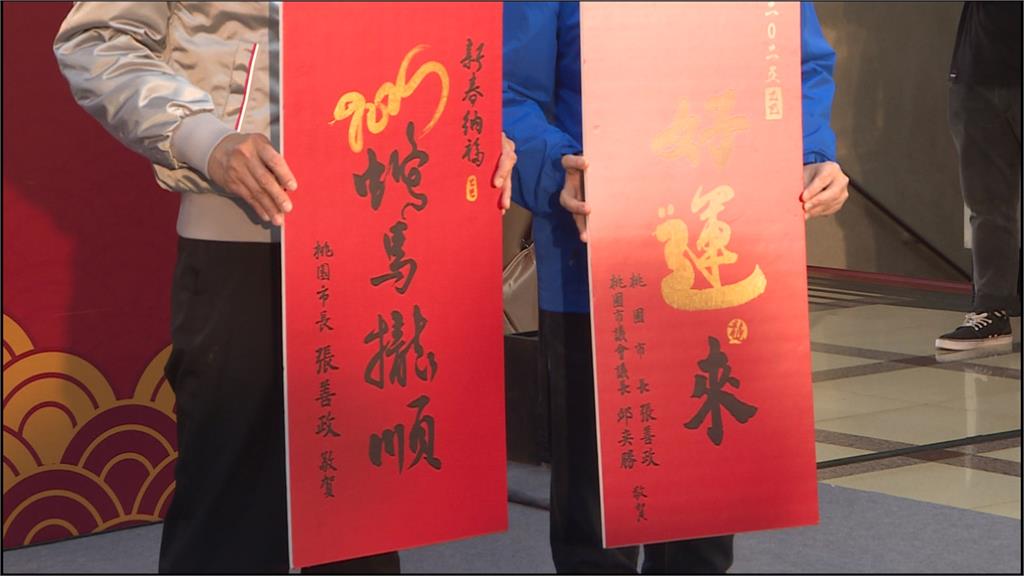 新春納福
乙巳
2025
蛇馬攏順
桃園市長 張善政 敬賀
二〇二五乙巳
好運來
桃園市長 張善政
桃園市議會議長 邱奕勝
敬賀